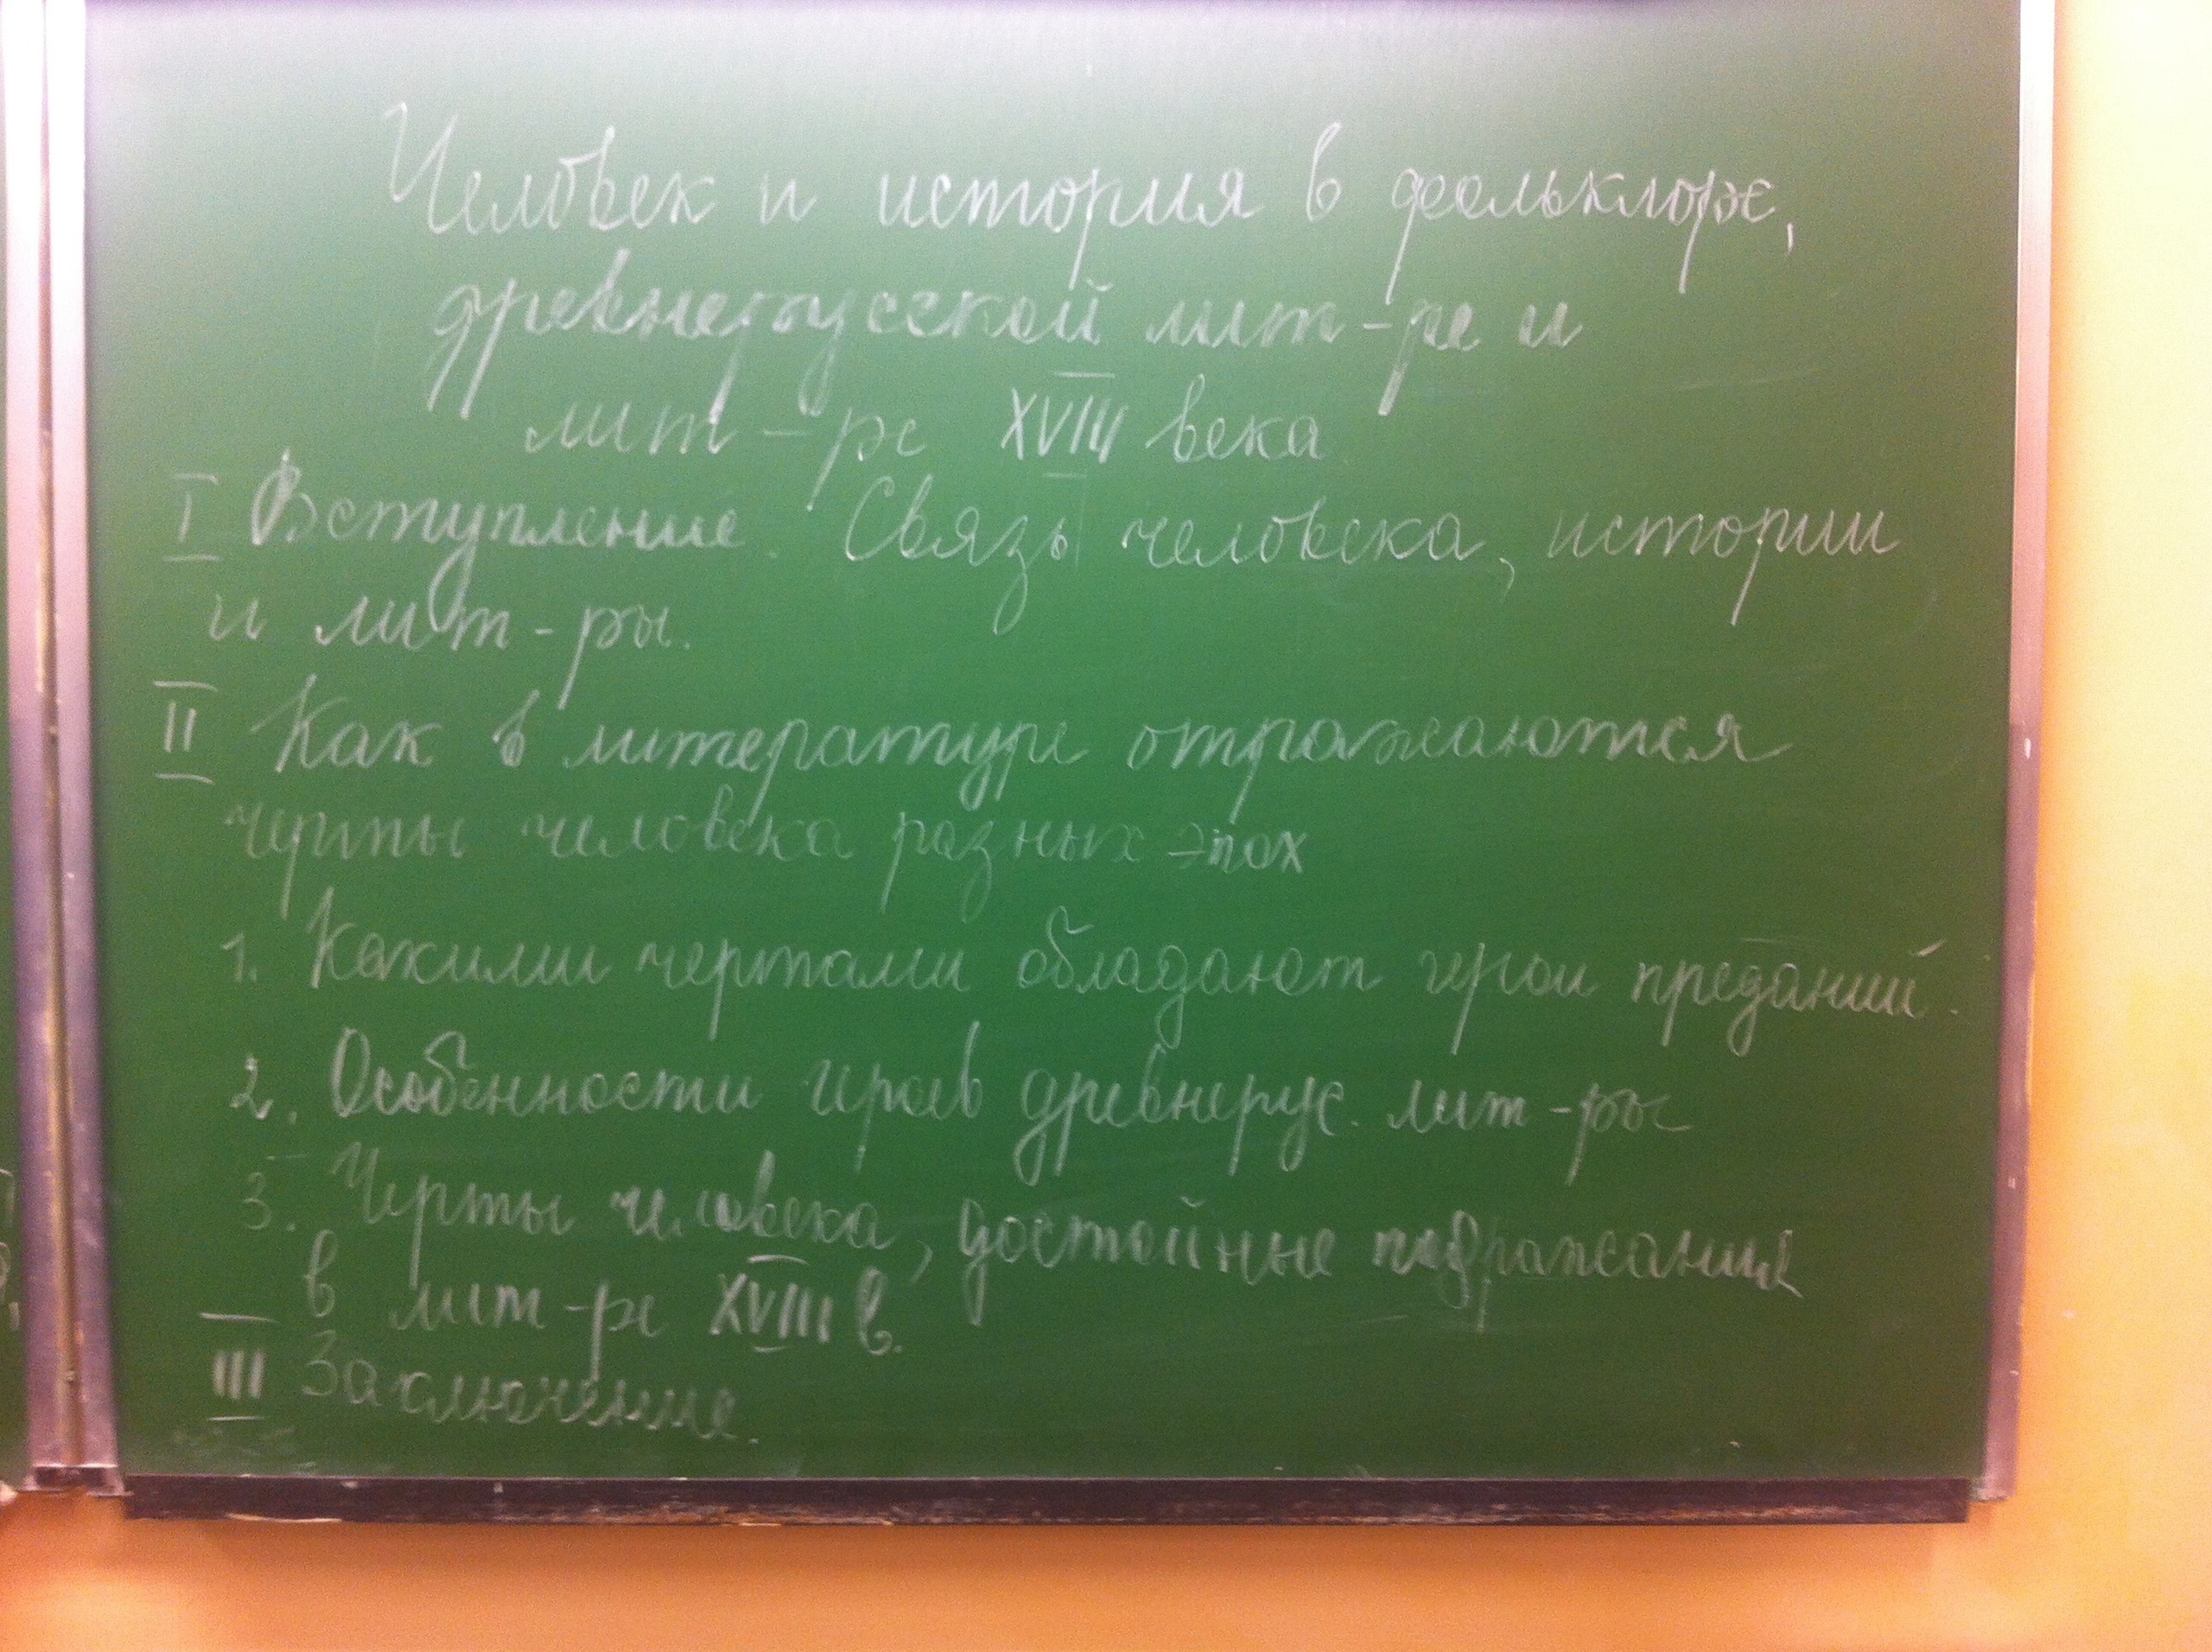 Человек и история в фольклоре,
древнерусской лит-ре и
лит-ре XVIII века
I Вступление. Связь человека, истории
и лит-ры.
II Как в литературе отражаются
черты человека разных эпох
1. Какими чертами обладают герои преданий.
2. Особенности героев древнерус. лит-ры
3. Черты человека, достойные подражания
в лит-ре XVIII в.
III Заключение.